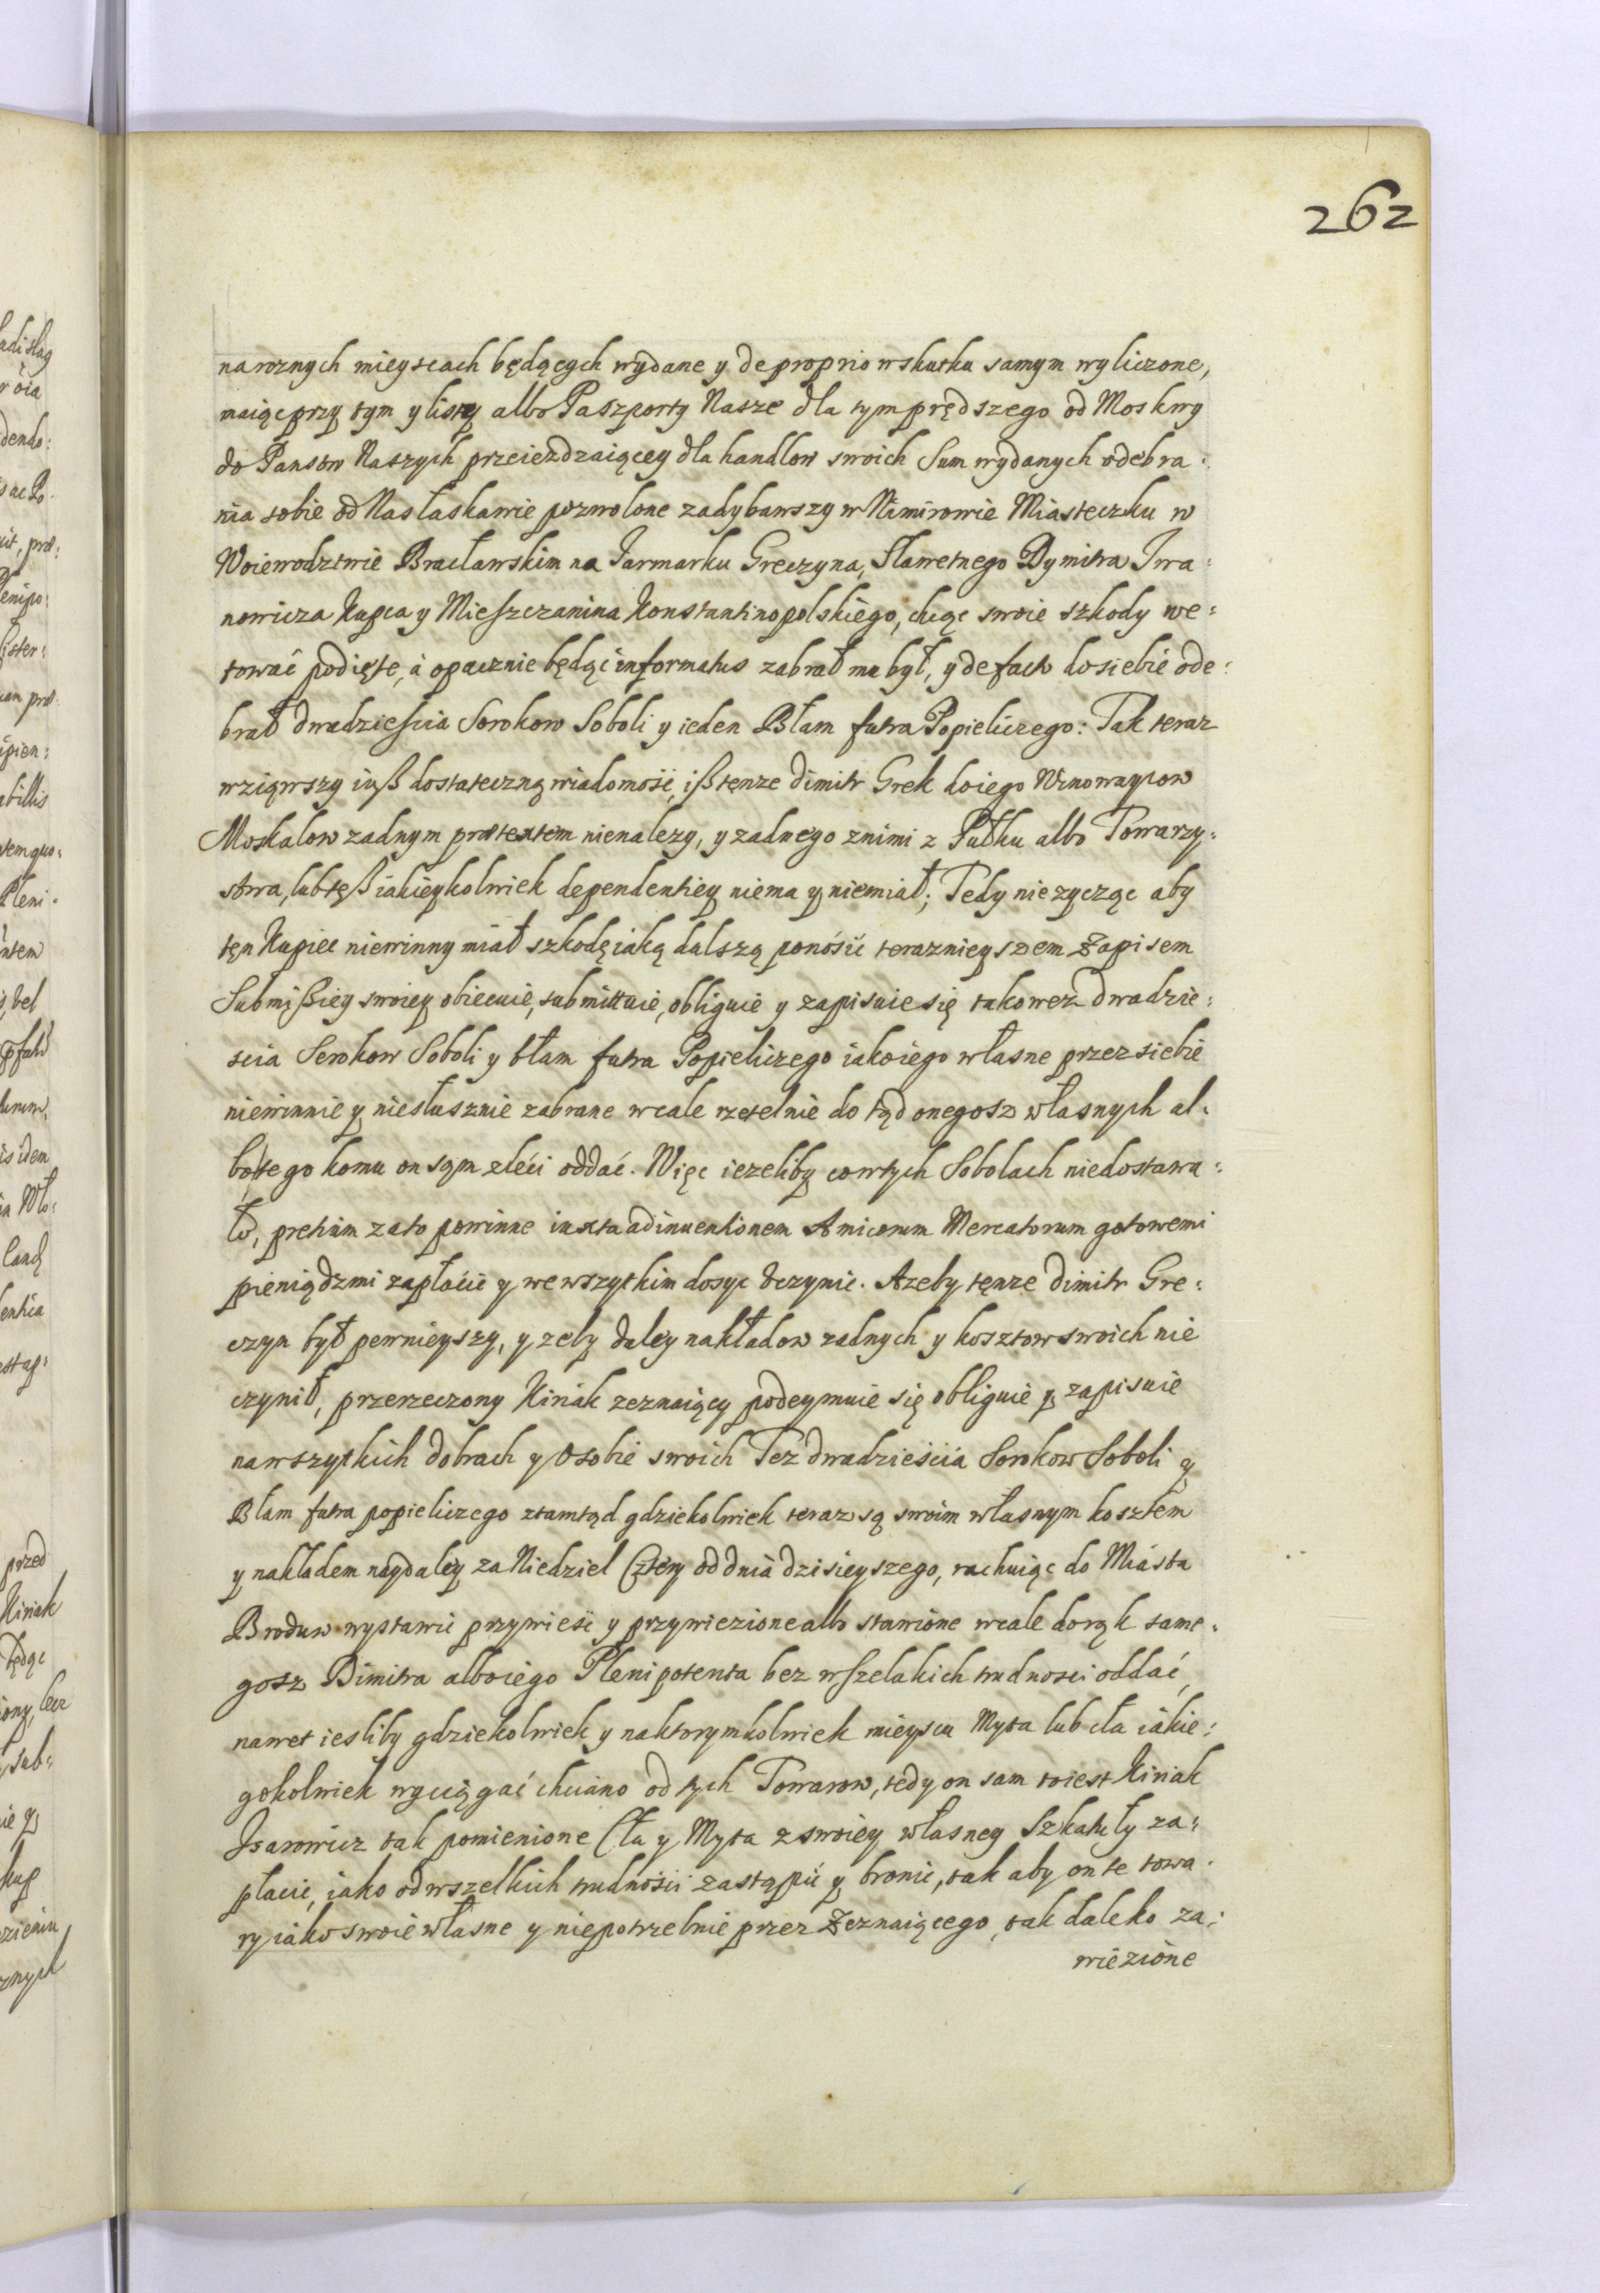 262
naroznych mieyscach będących wydane y de proprio wskutku samym wyliczone,
maiąc przy tym y listy albo Paszporty Nasze dla tym prędszego od Moskwy
do Panstw Naszych przeiezdzaiącey dla handlow swoich Sum wydanych odebra:
nia sobie od Nas łaskawie pozwolone zadybawszy w Nimirowie Miasteczku w
Woiewodztwie Bracławskim na Jarmarku Greczyna, Sławetnego Dymitra Iwa:
nowicza Kupca y Mieszczanina Konstantinopolskiego, chcąc swoie szkody we:
tować podięte, á opacznie będąc informatus zabrał mu był, y de facto do siebie ode:
brał dwadziescia Sorokow Soboli y ieden Błam futra Popieliczego: Tak teraz
wziąwszy iuß dostateczną wiadomość, iß tęnze Dimitr Grek do iego Winowaycow
Moskalow zadnym prætextem nienalezy, y zadnego znimi z Pułku albo Towarzy:
stwa, lub teß iakieykolwiek dependentiey niema y niemiał; Tedy nie zycząc aby
tęn Kupiec niewinny miał szkodę iaką dalszą ponosić terazniejszem Zapisem
Submißiey swoiey obiecuie, submittuie, obliguie y zapisuie się takowez dwadzie:
scia Sorokow Soboli y błam futra Popieliczego iako iego własne przez siebie
niewinnie y niesłusznie zabrane wcale rzetelnie do rąk onegosz własnych al:
bo tego komu on sąm zleci oddać. Więc iezeliby co wtych Sobolach niedostawa:
ło, pretium zato powinne iuxta adinuentionem Amicorum Mercatorum gotowemi
pieniądzmi zapłacić y we wszytkim dosyc uczynic. Azeby tęnze Dimitr Gre:
czyn był pewnieyszy, y zeby daley nakładow zadnych y kosztow swoich nie
czynił, przerzeczony Kiriak zeznaiący podeymuie się obliguie y zapisuie
na wszytkich dobrach y Osobie swoich Tez dwadzieścia Sorokow Soboli y
Błam futra popieliczego ztamtąd gdziekolwiek teraz są swoim własnym kosztem
y nakładem naydaley za Niedziel Cztery od dnia dzisieyszego, rachuiąc do Miasta
Broduw wystawić przywieść y przywiezione albo stawione wcale do rąk same:
gosz Dimitra albo iego Plenipotenta bez wszelakich trudnosci oddać,
nawet iesliby gdziekolwiek y naktorymkolwiek mieyscu Myta lub cła iakie:
gokolwiek wyciągać chciano od tych Towarow, tedy on sam toiest Kiriak
Isarowicz tak pomienione Cła y Myta z swoiey własney Szkatuły za:
płacic, iako od wszelkich trudności zastąpić y bronic, tak aby on te towa:
ry iako swoie własne y niepotrzebnie przez Zeznaiącego, tak daleko za:
wiezione